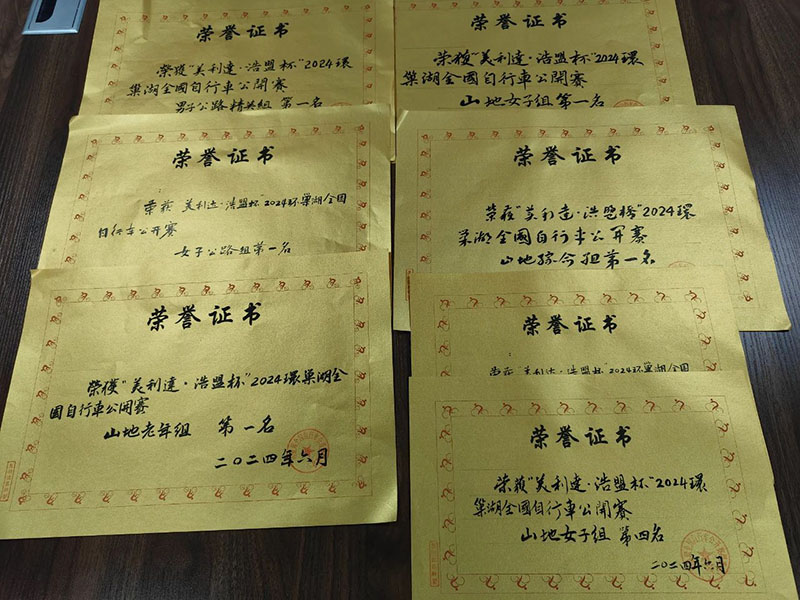 荣誉证书
榮獲"美利達·浩盟杯"2024環
巢湖全國自行車公開赛
男子公路精英组 第一名
荣誉证书
荣獲"美利達·浩盟杯"2024環
巢湖全國自行車公開賽
山地女子组 第一名
荣誉证书
荣获"美利达·浩盟杯"2024环巢湖全国
自行车公开赛
女子公路组第一名
荣誉证书
荣获"美利達·浩盟杯"2024環
巢湖全國自行車公开赛
山地综合组第一名
荣誉证书
榮獲"美利達·浩盟杯"2024環巢湖全
國自行車公開賽
山地老年组 第一名
二〇二四年六月
荣誉证书
荣获"美利達·浩盟杯"2024環巢湖全國
荣誉证书
荣获"美利達·浩盟杯"2024環
巢湖全國自行車公開賽
山地女子组 第四名
二〇二四年六月